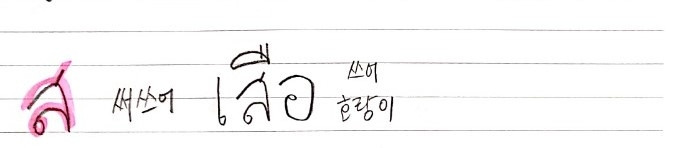 ส 써쓰어 เสือ 쓰어
호랑이